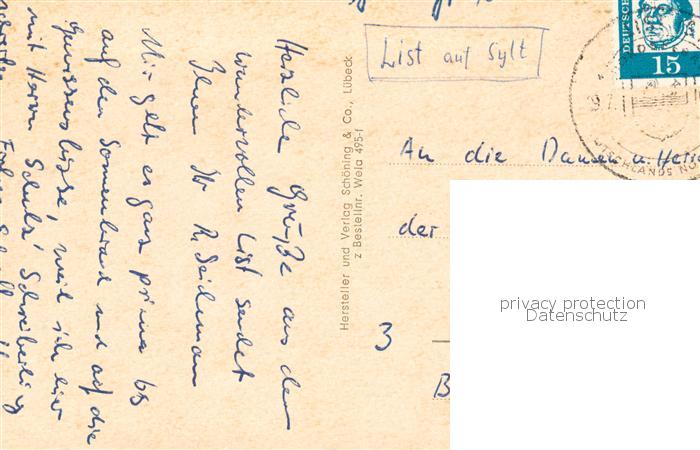 List auf Sylt
DEUTSCHE
15
TSCHLANDS NO
Herzliche Grüße aus dem
wundervollen List sendet
Ihnen Ihr R. Seidemann
Mir geht es ganz prima bis
auf den Sonnenbrand und auf die
weil ich hier
mit Herrn Schulz' Schreiberling
Hersteller und Verlag Schöning & Co., Lübeck
z Bestellnr. Wela 495-f
An die Damen u. Herren
der
3
B
privacy protection
Datenschutz